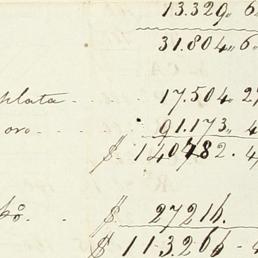 13.329,, 6
31.804,, 6
plata 17.504. 2
oro 91.173,, 4
$ 140.482. 4
$ 27216.
$ 113.266 - 4